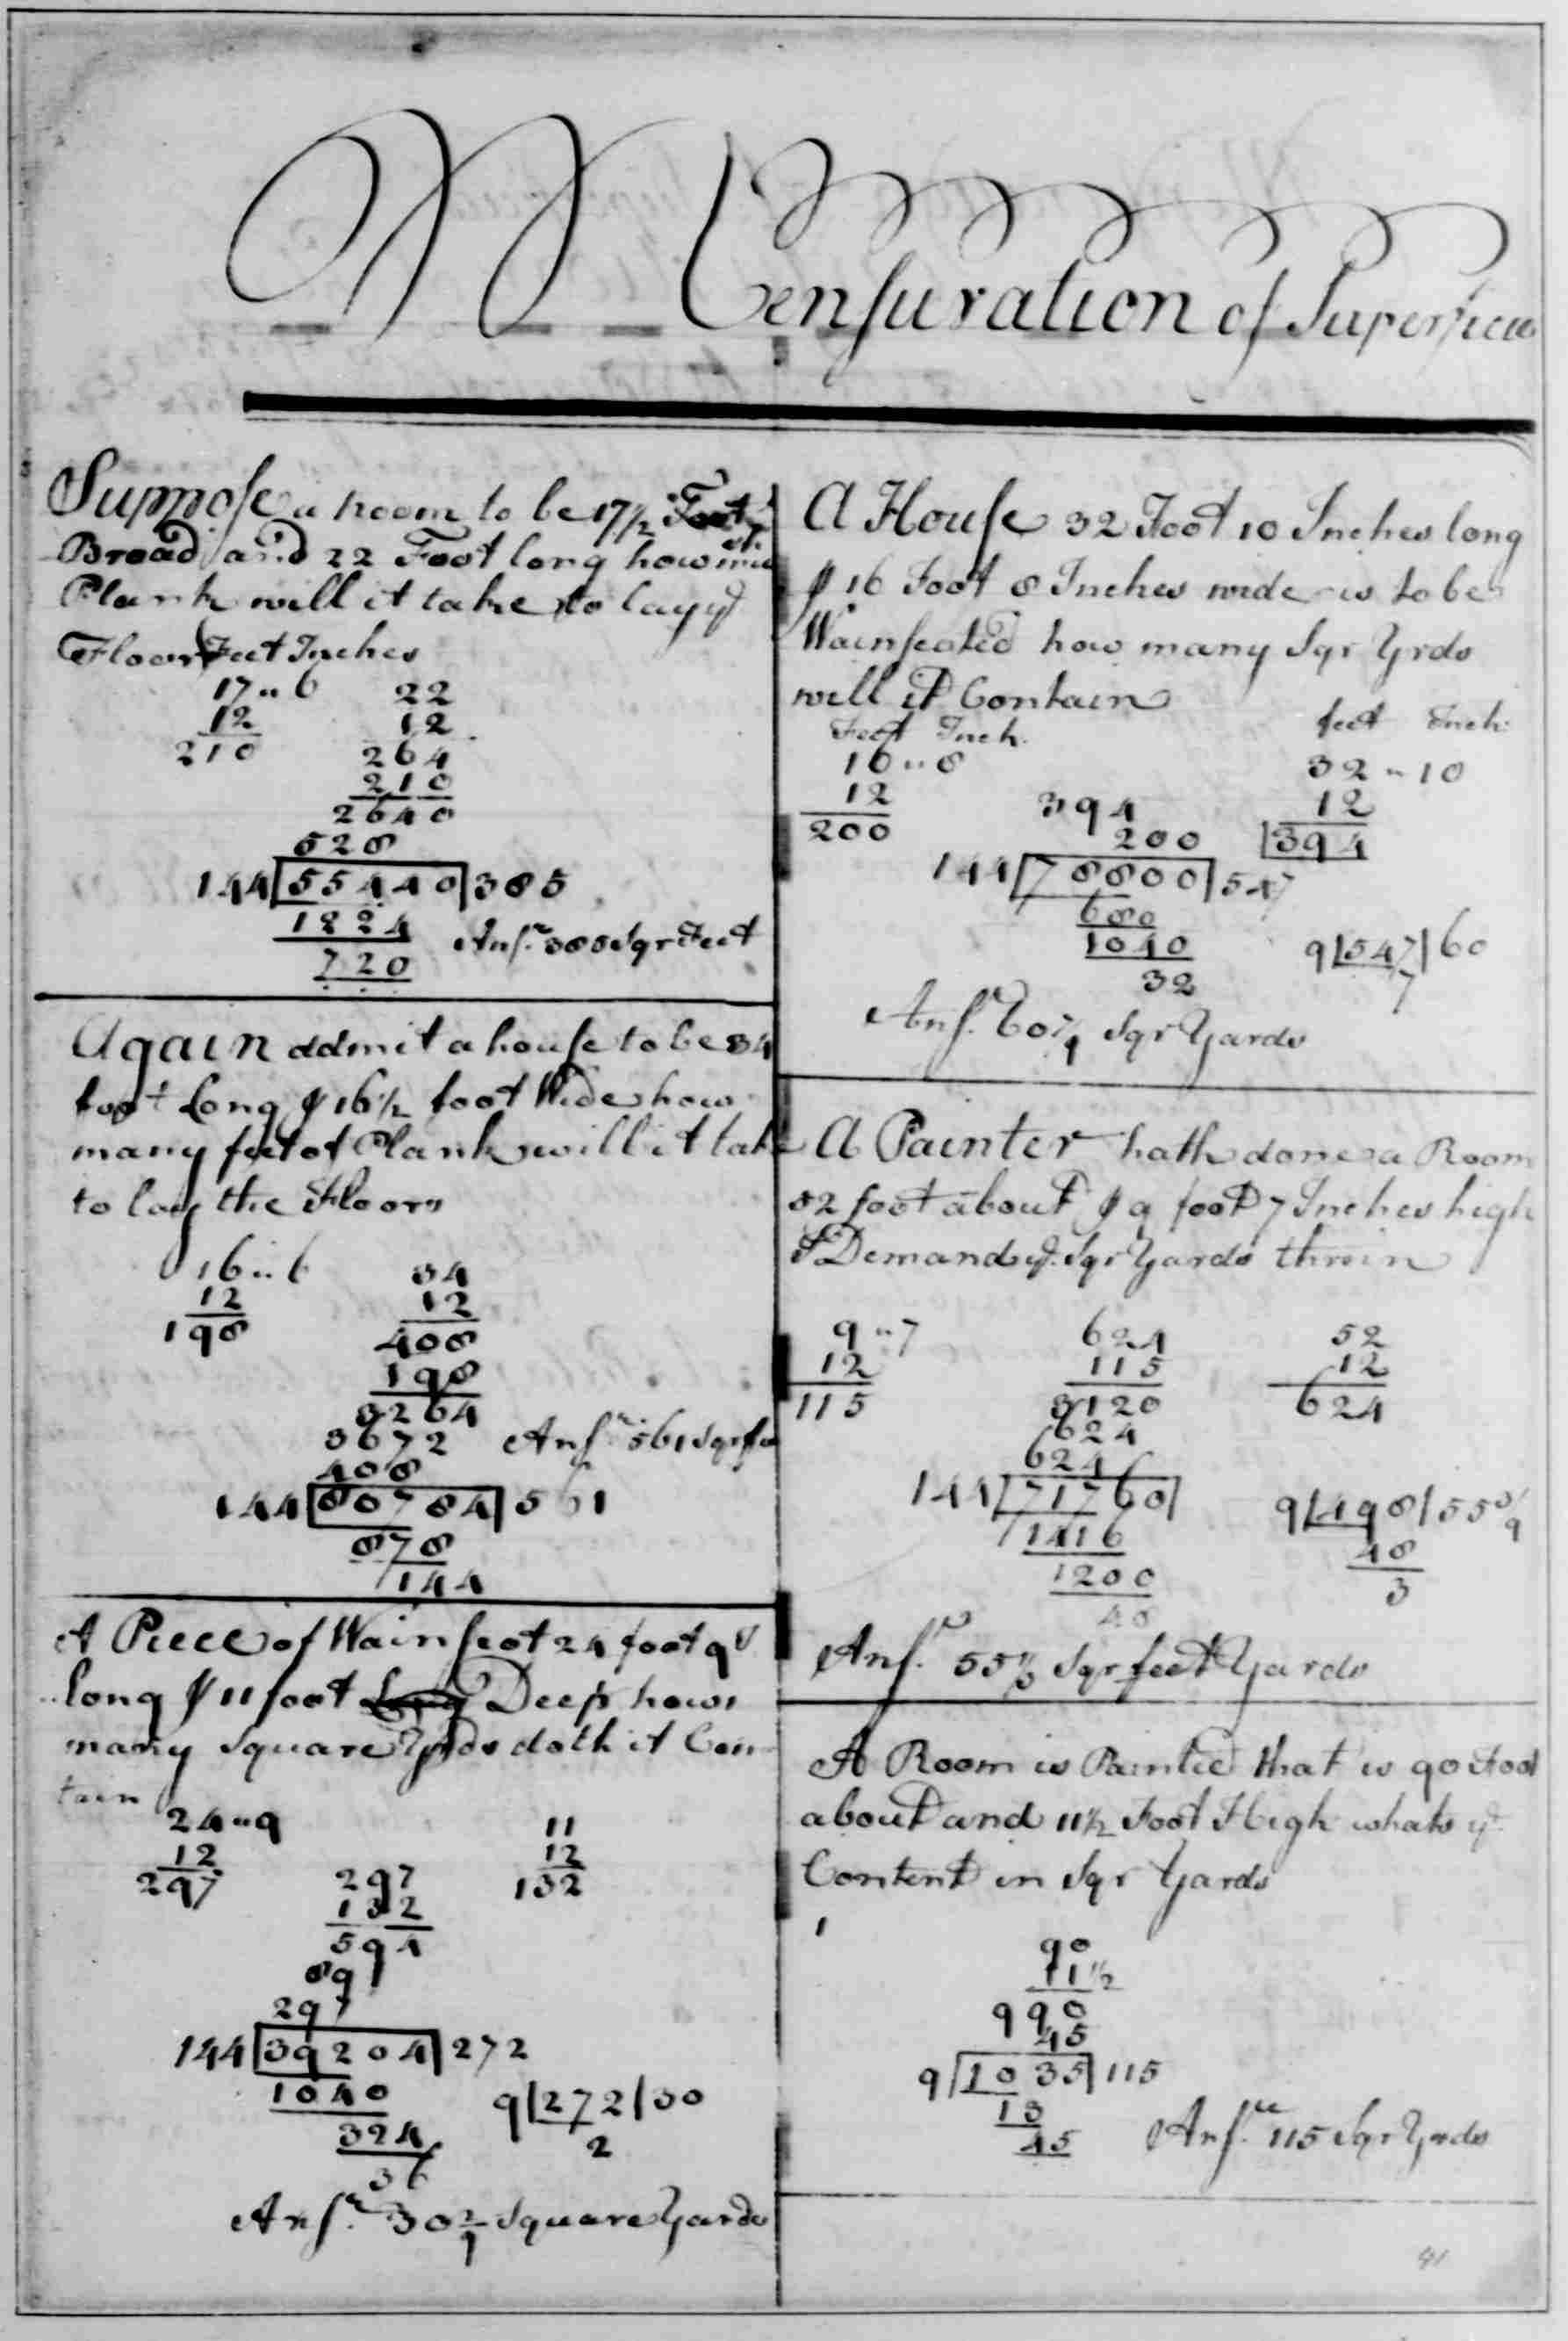 Mensuration of Superficies
Suppose a Room to be 17½ Foot
Broad and 22 Foot long how
Plank will it take to lay yᵉ
Floor Feet Inches
17 " 6 22
12 12
210 264
210
2640
528
144|55440|385
1224 Ansʳ 385 Sqr Feet
720
Again admit a house to be 34
foot Long & 16½ foot Wide how
many feet of Plank will it take
to lay the Floors
16 " 6 34
12 12
198 408
198
3264
3672 Ansʳ 561 Sqr
408
144|80784|561
878
144
A Piece of Wainscot 24 foot 9
long & 11 foot Long Deep how
many Square Yrds doth it Con
tain
24 " 9 11
12 12
297 297 132
132
594
891
297
144|39204|272
1040 9|272|30
324 2
36
Ansʳ 30 2/9 Square Yards
A House 32 Foot 10 Inches long
& 16 Foot 8 Inches wide is to be
Wainscoted how many Sqr Yrds
will it Contain
Foot Inch. feet Inch
16 " 8 32 " 10
12 394 12
200 200 394
144|78800|547
680
1040 9|547|60
32 7
Ansʳ 60 7/9 Sqr Yards
A Painter hath done a Room
52 foot about & 9 foot 7 Inches high
I Demand yᵉ Sqr Yards therin
9 " 7 624 52
12 115 12
115 3120 624
624
624
144|71760|
1416 9|498|55 3/9
1200 48
48 3
Ansʳ 55⅓ Sqr feet Yards
A Room is Painted that is 90 Foot
about and 11½ Foot High whats yᵉ
Content in Sqr Yards
90
11½
990
45
9|1035|115
13
45 Ansʳ 115 Sqr Yrds
41